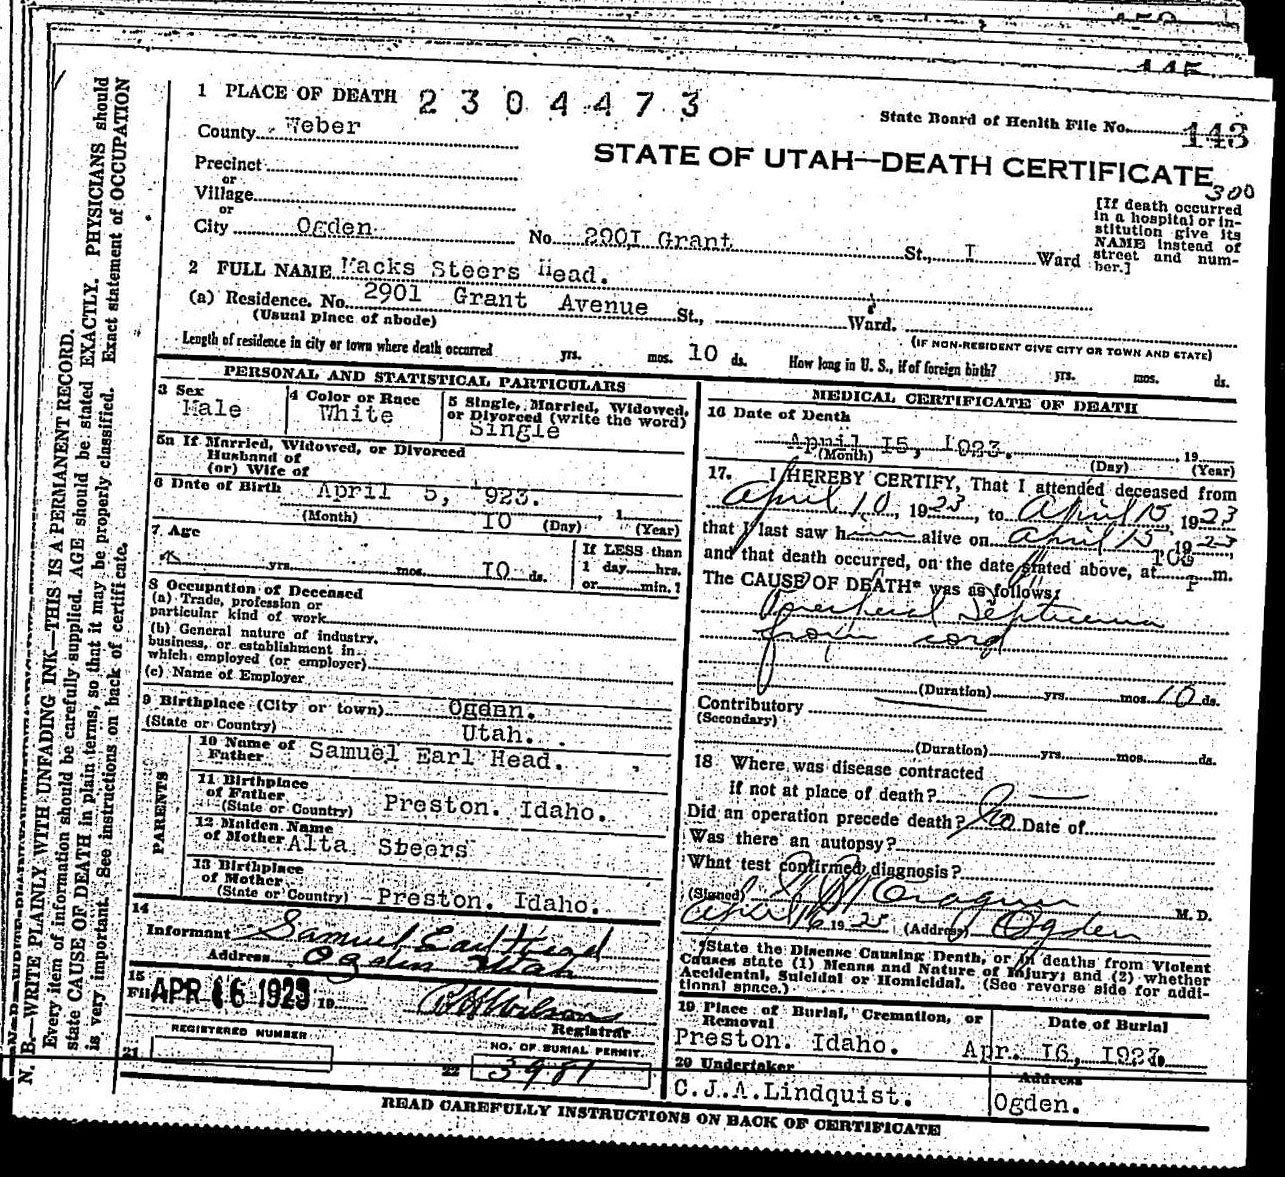 145
1 PLACE OF DEATH 2304473
State Board of Health File No. 143
County Weber
STATE OF UTAH—DEATH CERTIFICATE
300
Precinct
or
Village
or
City Ogden No. 290I Grant St., I Ward
[If death occurred
in a hospital or in-
stitution give its
NAME instead of
street and num-
ber.]
2 FULL NAME Macks Steers Head.
(a) Residence. No. 2901 Grant Avenue St., Ward.
(Usual place of abode)
(IF NON-RESIDENT GIVE CITY OR TOWN AND STATE)
Length of residence in city or town where death occurred yrs. mos. 10 ds. How long in U. S., if of foreign birth? yrs. mos. ds.
PERSONAL AND STATISTICAL PARTICULARS
3 Sex
Male
4 Color or Race
White
5 Single, Married, Widowed,
or Divorced (write the word)
Single
5a If Married, Widowed, or Divorced
Husband of
(or) Wife of
6 Date of Birth April 5, 1923. 1
(Month) (Day) (Year)
IO
7 Age
yrs. mos. IO ds.
If LESS than
1 day hrs.
or min.?
8 Occupation of Deceased
(a) Trade, profession or
particular kind of work
(b) General nature of industry,
business, or establishment in
which employed (or employer)
(c) Name of Employer
9 Birthplace (City or town) Ogden.
(State or Country) Utah.
PARENTS
10 Name of
Father Samuel Earl Head.
11 Birthplace
of Father
(State or Country) Preston. Idaho.
12 Maiden Name
of Mother Alta Steers
13 Birthplace
of Mother
(State or Country) Preston. Idaho.
14
Informant Samuel Earl Head
Address Ogden Utah
15
Filed APR 16 1923 19
R H Wilson
Registrar
REGISTERED NUMBER
21
NO. OF BURIAL PERMIT.
22 3981
MEDICAL CERTIFICATE OF DEATH
16 Date of Death
April I5, 1923. 19
(Month) (Day) (Year)
17. I HEREBY CERTIFY, That I attended deceased from
April 10, 1923, to April 15, 1923
that I last saw him alive on April 15 1923
and that death occurred, on the date stated above, at 100 P m.
The CAUSE OF DEATH* was as follows:
Puerperal Septicemia
from cord
(Duration) yrs. mos. 10 ds.
Contributory
(Secondary)
(Duration) yrs. mos. ds.
18 Where was disease contracted
If not at place of death?
Did an operation precede death? No Date of
Was there an autopsy?
What test confirmed diagnosis?
(Signed) M.D.
April 16 1923 (Address) Ogden
*State the Disease Causing Death, or in deaths from Violent
Causes state (1) Means and Nature of Injury; and (2) whether
Accidental, Suicidal or Homicidal. (See reverse side for addi-
tional space.)
19 Place of Burial, Cremation, or
Removal
Preston. Idaho.
Date of Burial
Apr. I6, I923. 19
20 Undertaker
C.J.A.Lindquist.
Address
Ogden.
READ CAREFULLY INSTRUCTIONS ON BACK OF CERTIFICATE
N. B.—WRITE PLAINLY WITH UNFADING INK—THIS IS A PERMANENT RECORD.
Every item of information should be carefully supplied. AGE should be stated EXACTLY. PHYSICIANS should
state CAUSE OF DEATH in plain terms, so that it may be properly classified. Exact statement of OCCUPATION
is very important. See instructions on back of certificate.